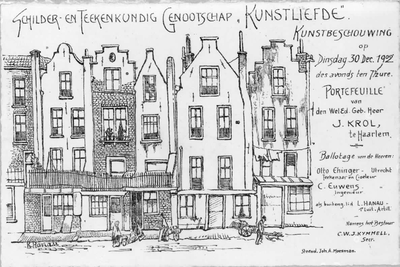 SCHILDER- EN TEEKENKUNDIG GENOOTSCHAP, "KUNSTLIEFDE".
KUNSTBESCHOUWING
op
Dinsdag 30 Dec. 192
des avonds ten 7½ ure.
PORTEFEUILLE
van
den Wel.Ed. Geb. Heer
J. KROL,
te Haarlem.
Ballotage van de Heeren:
Otto Ehinger. Utrecht
C. Euwens.
Ingenieur
als buiteng. lid L. HANAU
Namens het Bestuur
C.W.J. KYMMELL,
Secr.
R. Hanau
Steend. Joh. A. Moesman.